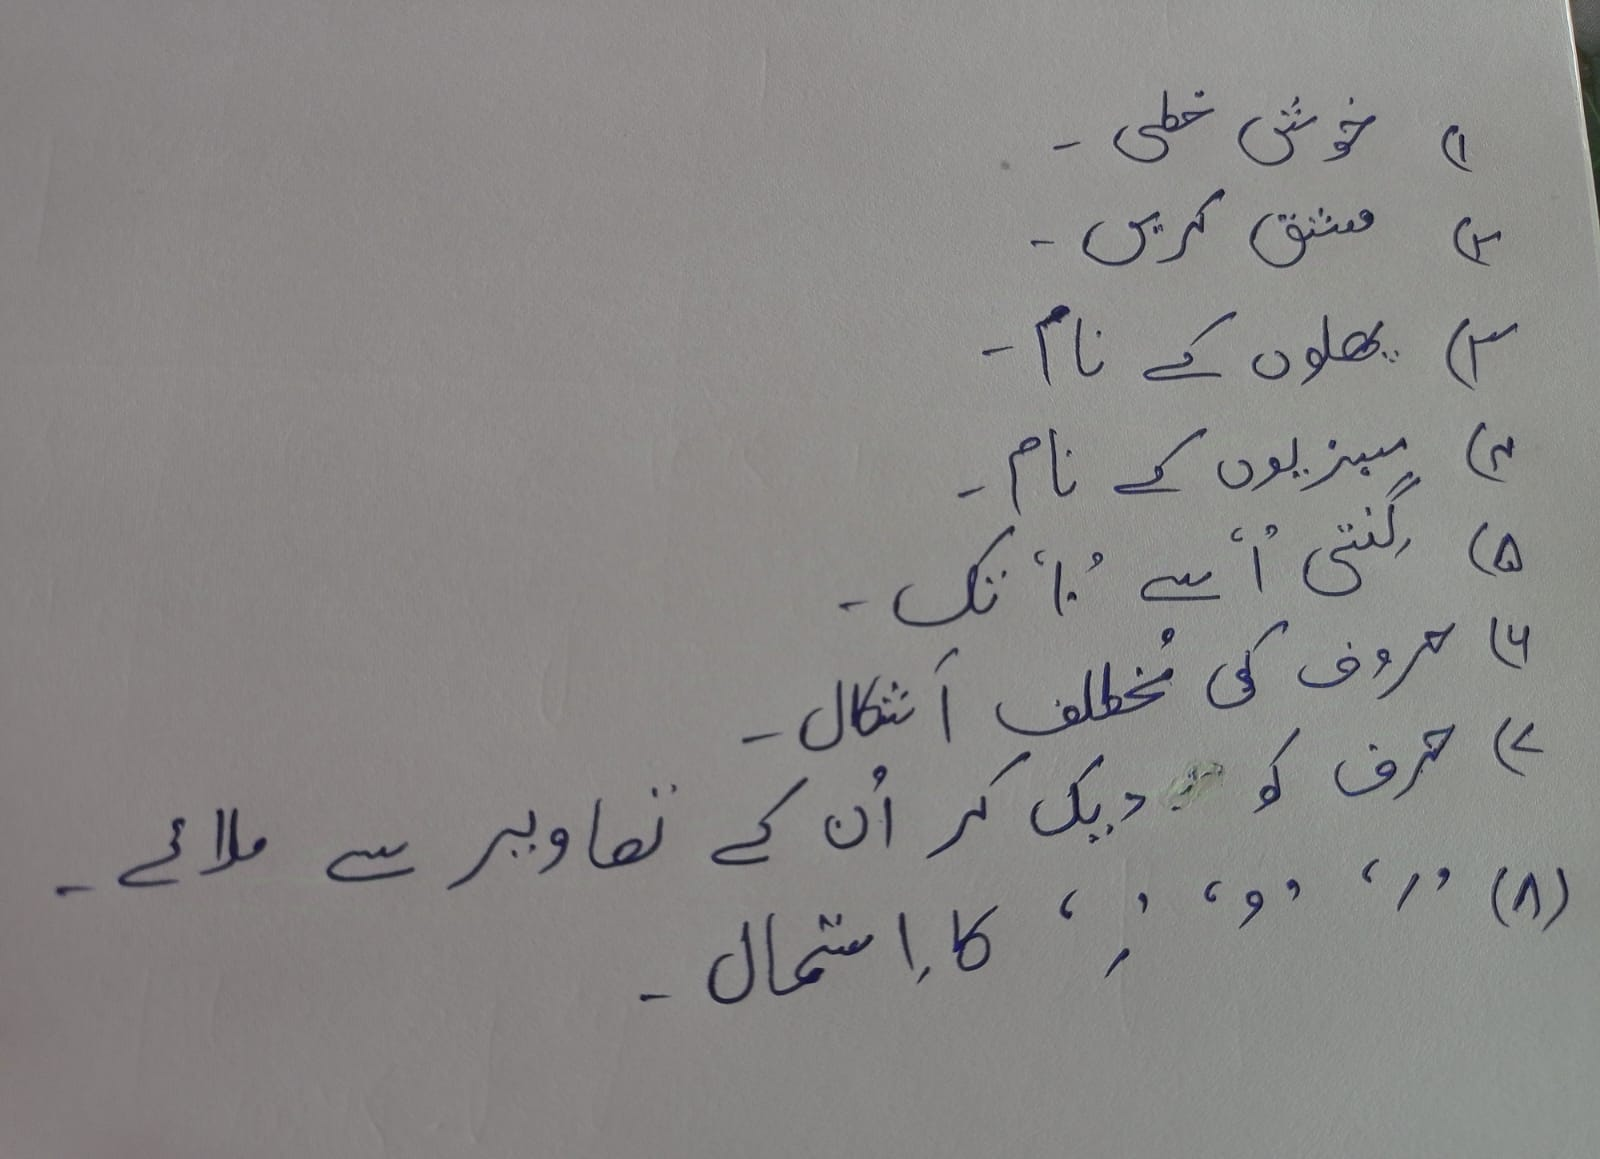 ۱) خوش خطی ۔
۲) مشق کریں ۔
۳) پھلوں کے نام ۔
۴) سبزیوں کے نام ۔
۵) گِنتی ’۱‘ سے ’۱۰‘ تک ۔
۶) حروف کی مُخطلف اَشکال ۔
۷) حرف کو دیک کر اُن کے تصاویر سے ملائے ۔
(۸) ’ َ ‘ ’ ُ ‘ ’ ِ ‘ کا اِستمال ۔